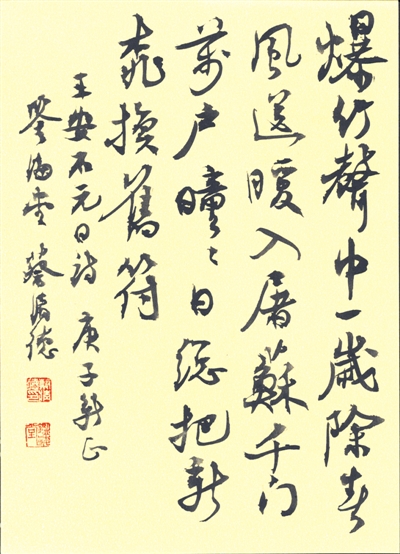 爆竹聲中一歲除春
風送暖入屠蘇千门
萬户曈〻日總把新
桃換舊符
王安石元日詩 庚子新正